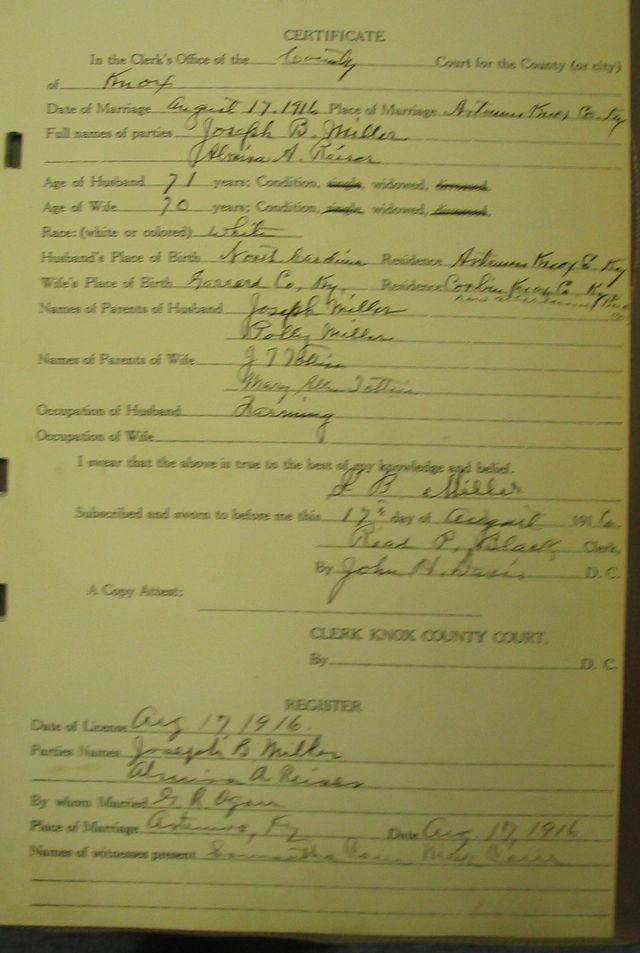 CERTIFICATE
In the Clerk's Office of the County Court for the County (or city)
of Knox
Date of Marriage August 17, 1916 Place of Marriage Artemus Knox Co. Ky
Full names of parties Joseph B. Miller
Almira A. Reiser
Age of Husband 71 years; Condition, single, widowed, divorced.
Age of Wife 70 years; Condition, single, widowed, divorced.
Race: (white or colored) White
Husband's Place of Birth North Carolina Residence Artemus Knox Co. Ky
Wife's Place of Birth Garrard Co, Ky. Residence Corbin Knox Co. Ky
Names of Parents of Husband Joseph Miller
Polly Miller
Names of Parents of Wife J T
Mary
Occupation of Husband Farming
Occupation of Wife
I swear that the above is true to the best of my knowledge and belief.
J B Miller
Subscribed and sworn to before me this 17th day of August 1916.
Read P. Black Clerk,
By John H. Davis D. C.
A Copy Attest:
CLERK KNOX COUNTY COURT.
By D. C.
REGISTER
Date of License Aug 17, 1916.
Parties Names Joseph B Miller
Almira A Reiser
By whom Married G R Ogan
Place of Marriage Artemus, Ky Date Aug. 17, 1916
Names of witnesses present Samantha